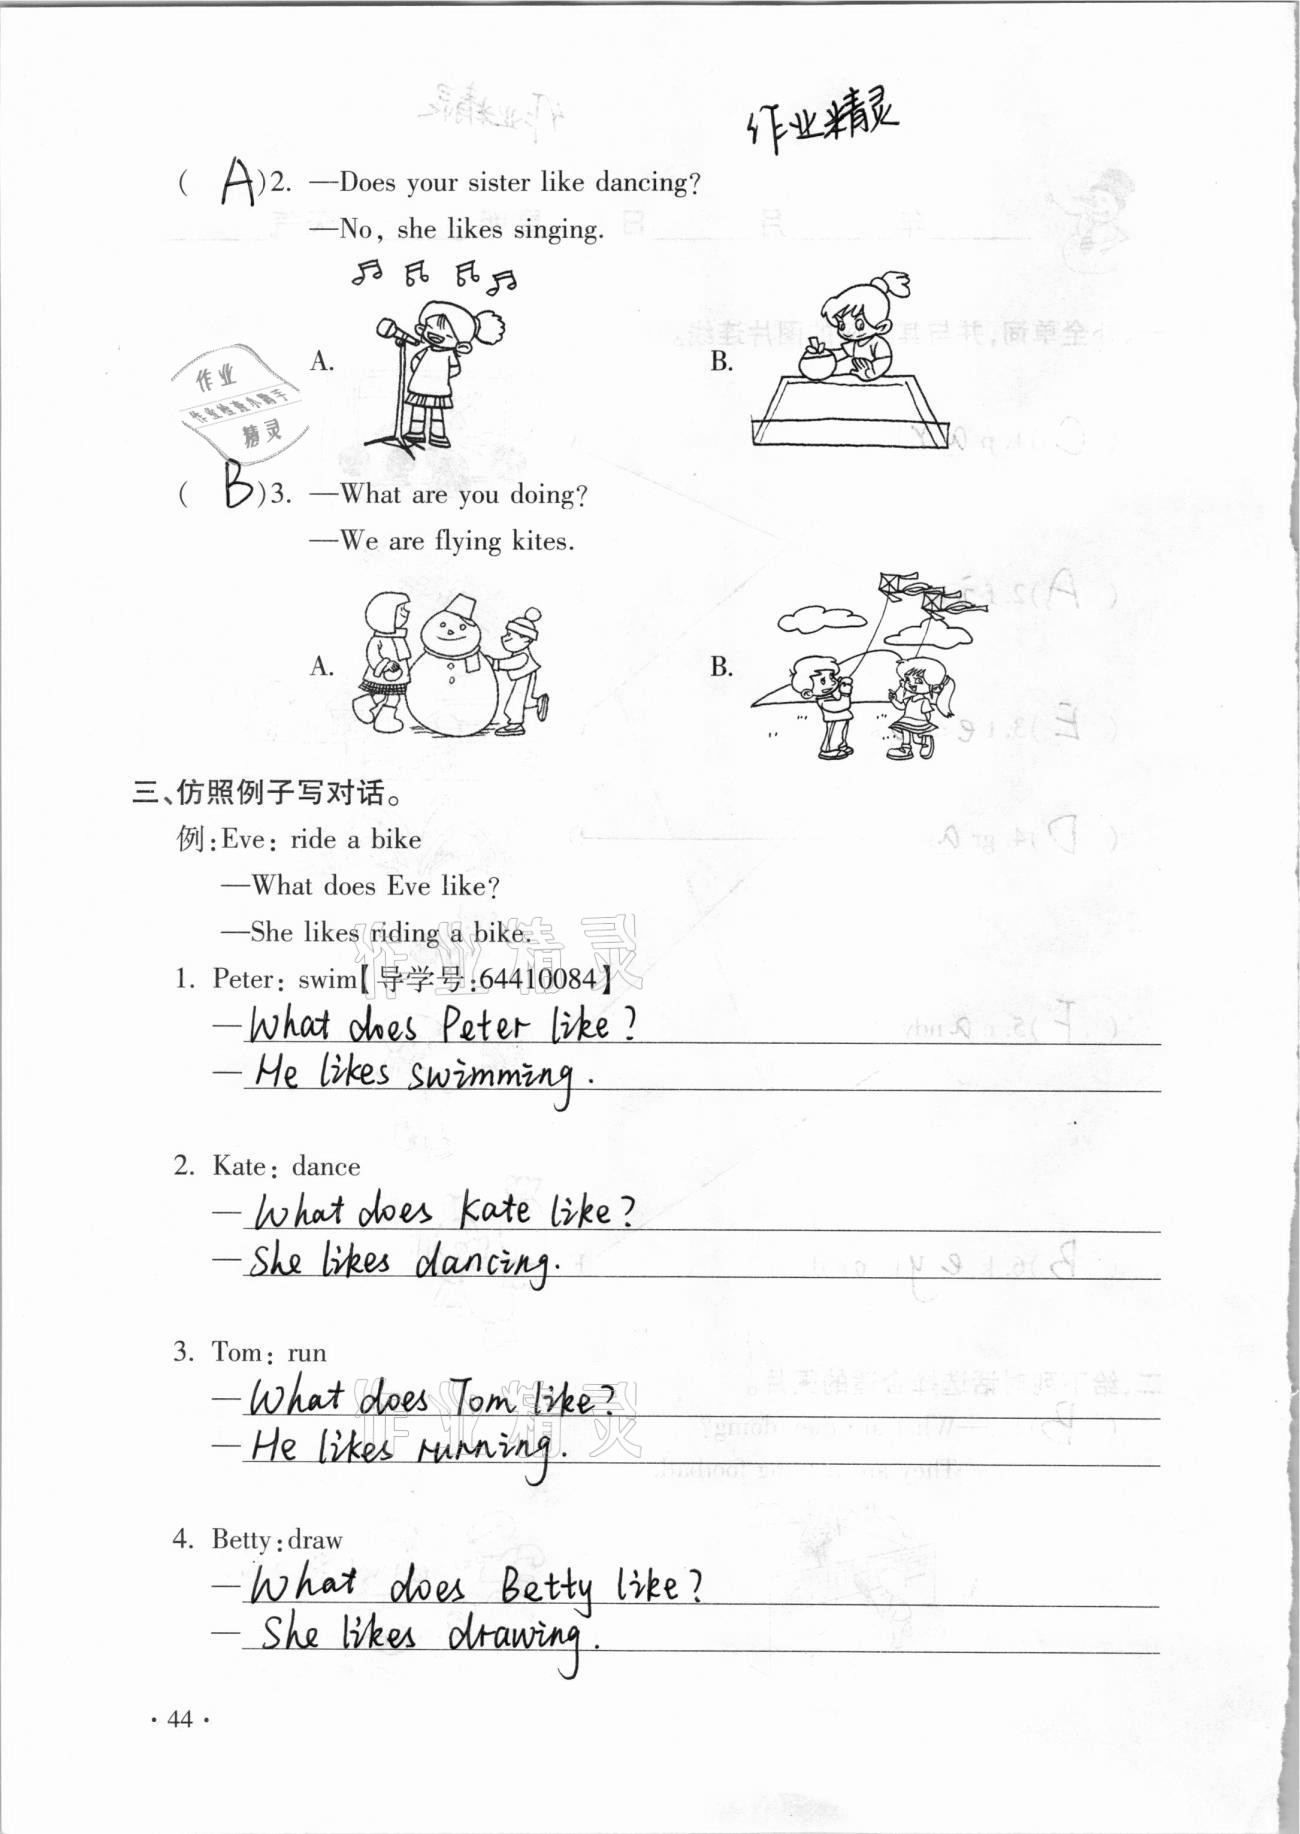 作业精灵
( A )2. —Does your sister like dancing?
—No, she likes singing.
A.
B.
作业
作业检查小助手
精灵
( B )3. —What are you doing?
—We are flying kites.
A.
B.
三、仿照例子写对话。
例:Eve: ride a bike
—What does Eve like?
—She likes riding a bike.
作业精灵
1. Peter: swim【导学号:64410084】
—What does Peter like?
—He likes swimming.
2. Kate: dance
—What does Kate like?
—She likes dancing.
3. Tom: run
—What does Tom like?
作业精灵
—He likes running.
4. Betty:draw
—What does Betty like?
—She likes drawing.
·44·